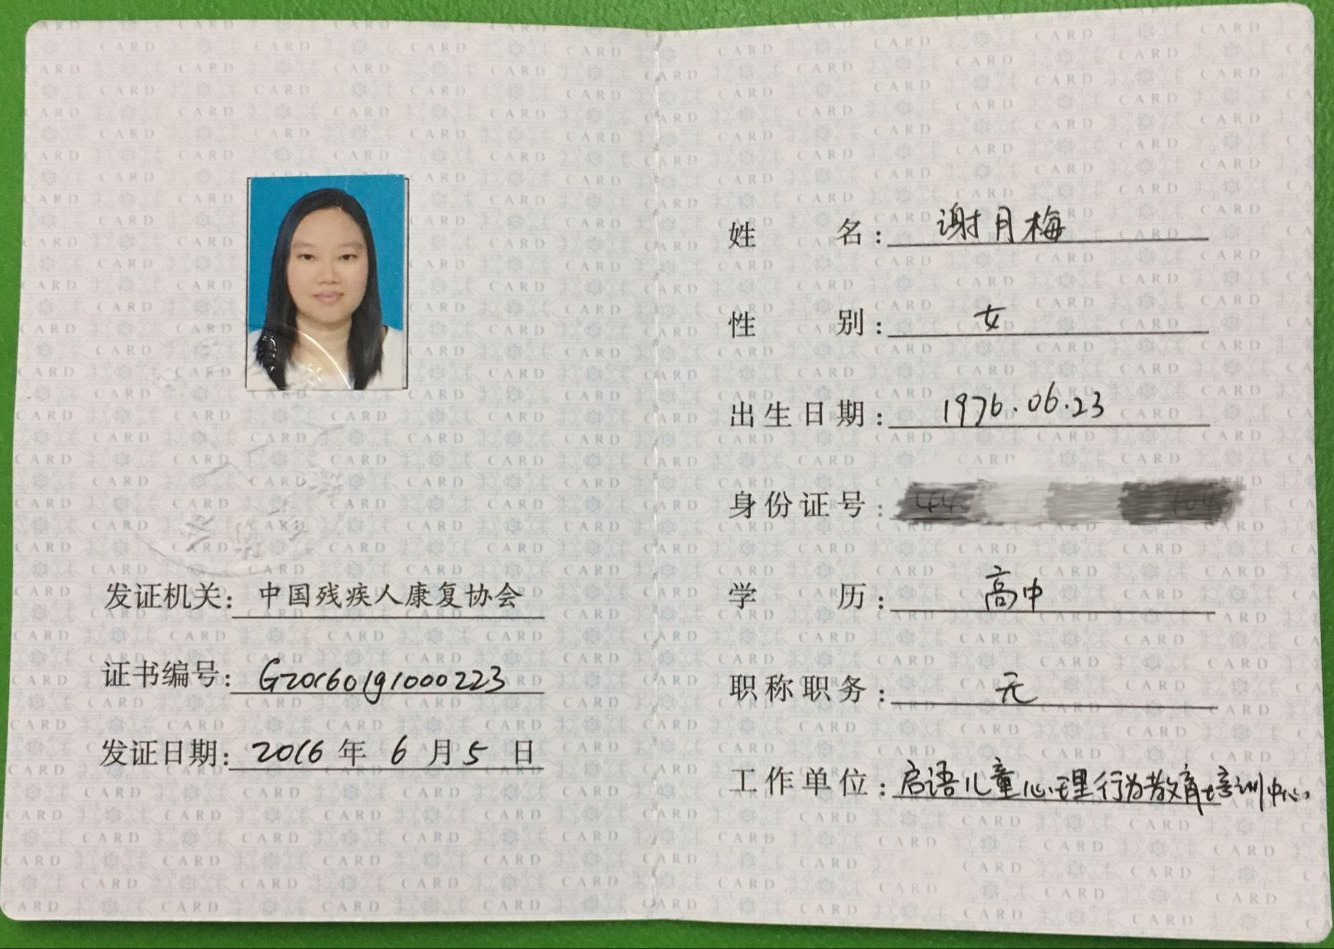 发证机关：中国残疾人康复协会
证书编号：G20160191000223
发证日期：2016年6月5日
姓名：谢月梅
性别：女
出生日期：1976.06.23
身份证号：
学历：高中
职称职务：无
工作单位：启语儿童心理行为教育培训中心